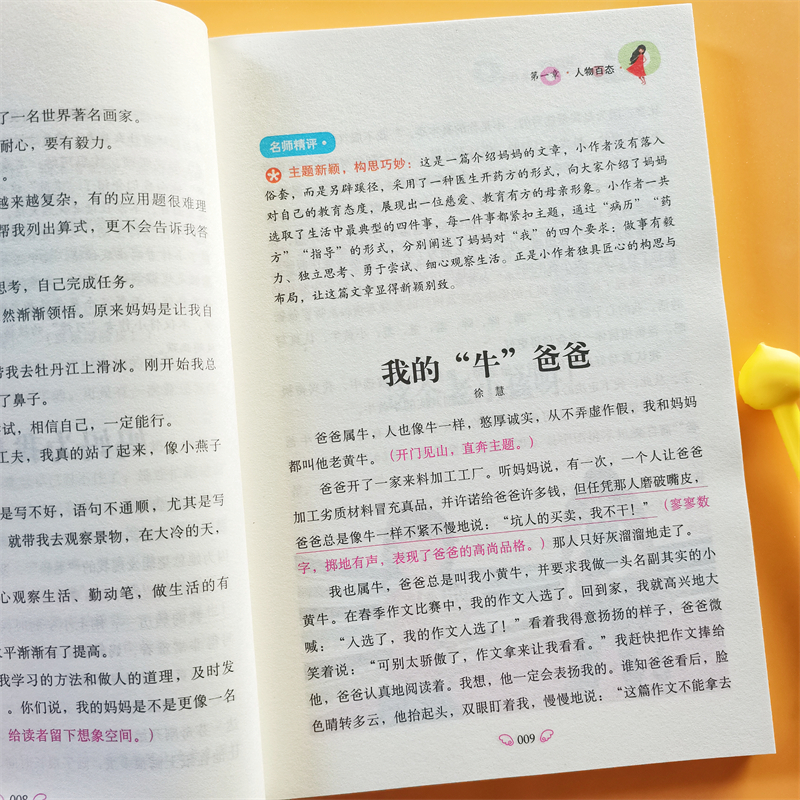 了一名世界著名画家。
耐心，要有毅力。
。
越来越复杂，有的应用题很难理
帮我列出算式，更不会告诉我答
思考，自己完成任务。
然渐渐领悟。原来妈妈是让我自
带我去牡丹江上滑冰。刚开始我总
了鼻子。
试，相信自己，一定能行。
工夫，我真的站了起来，像小燕子
是写不好，语句不通顺，尤其是写
就带我去观察景物，在大冷的天，
心观察生活、勤动笔，做生活的有
水平渐渐有了提高。
我学习的方法和做人的道理，及时发
。你们说，我的妈妈是不是更像一名
给读者留下想象空间。）
008
第一章·人物百态·
名师精评
主题新颖，构思巧妙：这是一篇介绍妈妈的文章，小作者没有落入
俗套，而是另辟蹊径，采用了一种医生开药方的形式，向大家介绍了妈妈
对自己的教育态度，展现出一位慈爱、教育有方的母亲形象。小作者一共
选取了生活中最典型的四件事，每一件事都紧扣主题，通过“病历”“药
方”“指导”的形式，分别阐述了妈妈对“我”的四个要求：做事有毅
力、独立思考、勇于尝试、细心观察生活。正是小作者独具匠心的构思与
布局，让这篇文章显得新颖别致。
我的“牛”爸爸
徐 慧
爸爸属牛，人也像牛一样，憨厚诚实，从不弄虚作假，我和妈妈
都叫他老黄牛。（开门见山，直奔主题。）
爸爸开了一家来料加工工厂。听妈妈说，有一次，一个人让爸爸
加工劣质材料冒充真品，并许诺给爸爸许多钱，但任凭那人磨破嘴皮，
爸爸总是像牛一样不紧不慢地说：“坑人的买卖，我不干！”（寥寥数
字，掷地有声，表现了爸爸的高尚品格。）那人只好灰溜溜地走了。
我也属牛，爸爸总是叫我小黄牛，并要求我做一头名副其实的小
黄牛。在春季作文比赛中，我的作文入选了。回到家，我就高兴地大
喊：“入选了，我的作文入选了！”看着我得意扬扬的样子，爸爸微
笑着说：“可别太骄傲了，作文拿来让我看看。”我赶快把作文捧给
他，爸爸认真地阅读着。我想，他一定会表扬我的。谁知爸爸看后，脸
色晴转多云，他抬起头，双眼盯着我，慢慢地说：“这篇作文不能拿去
009